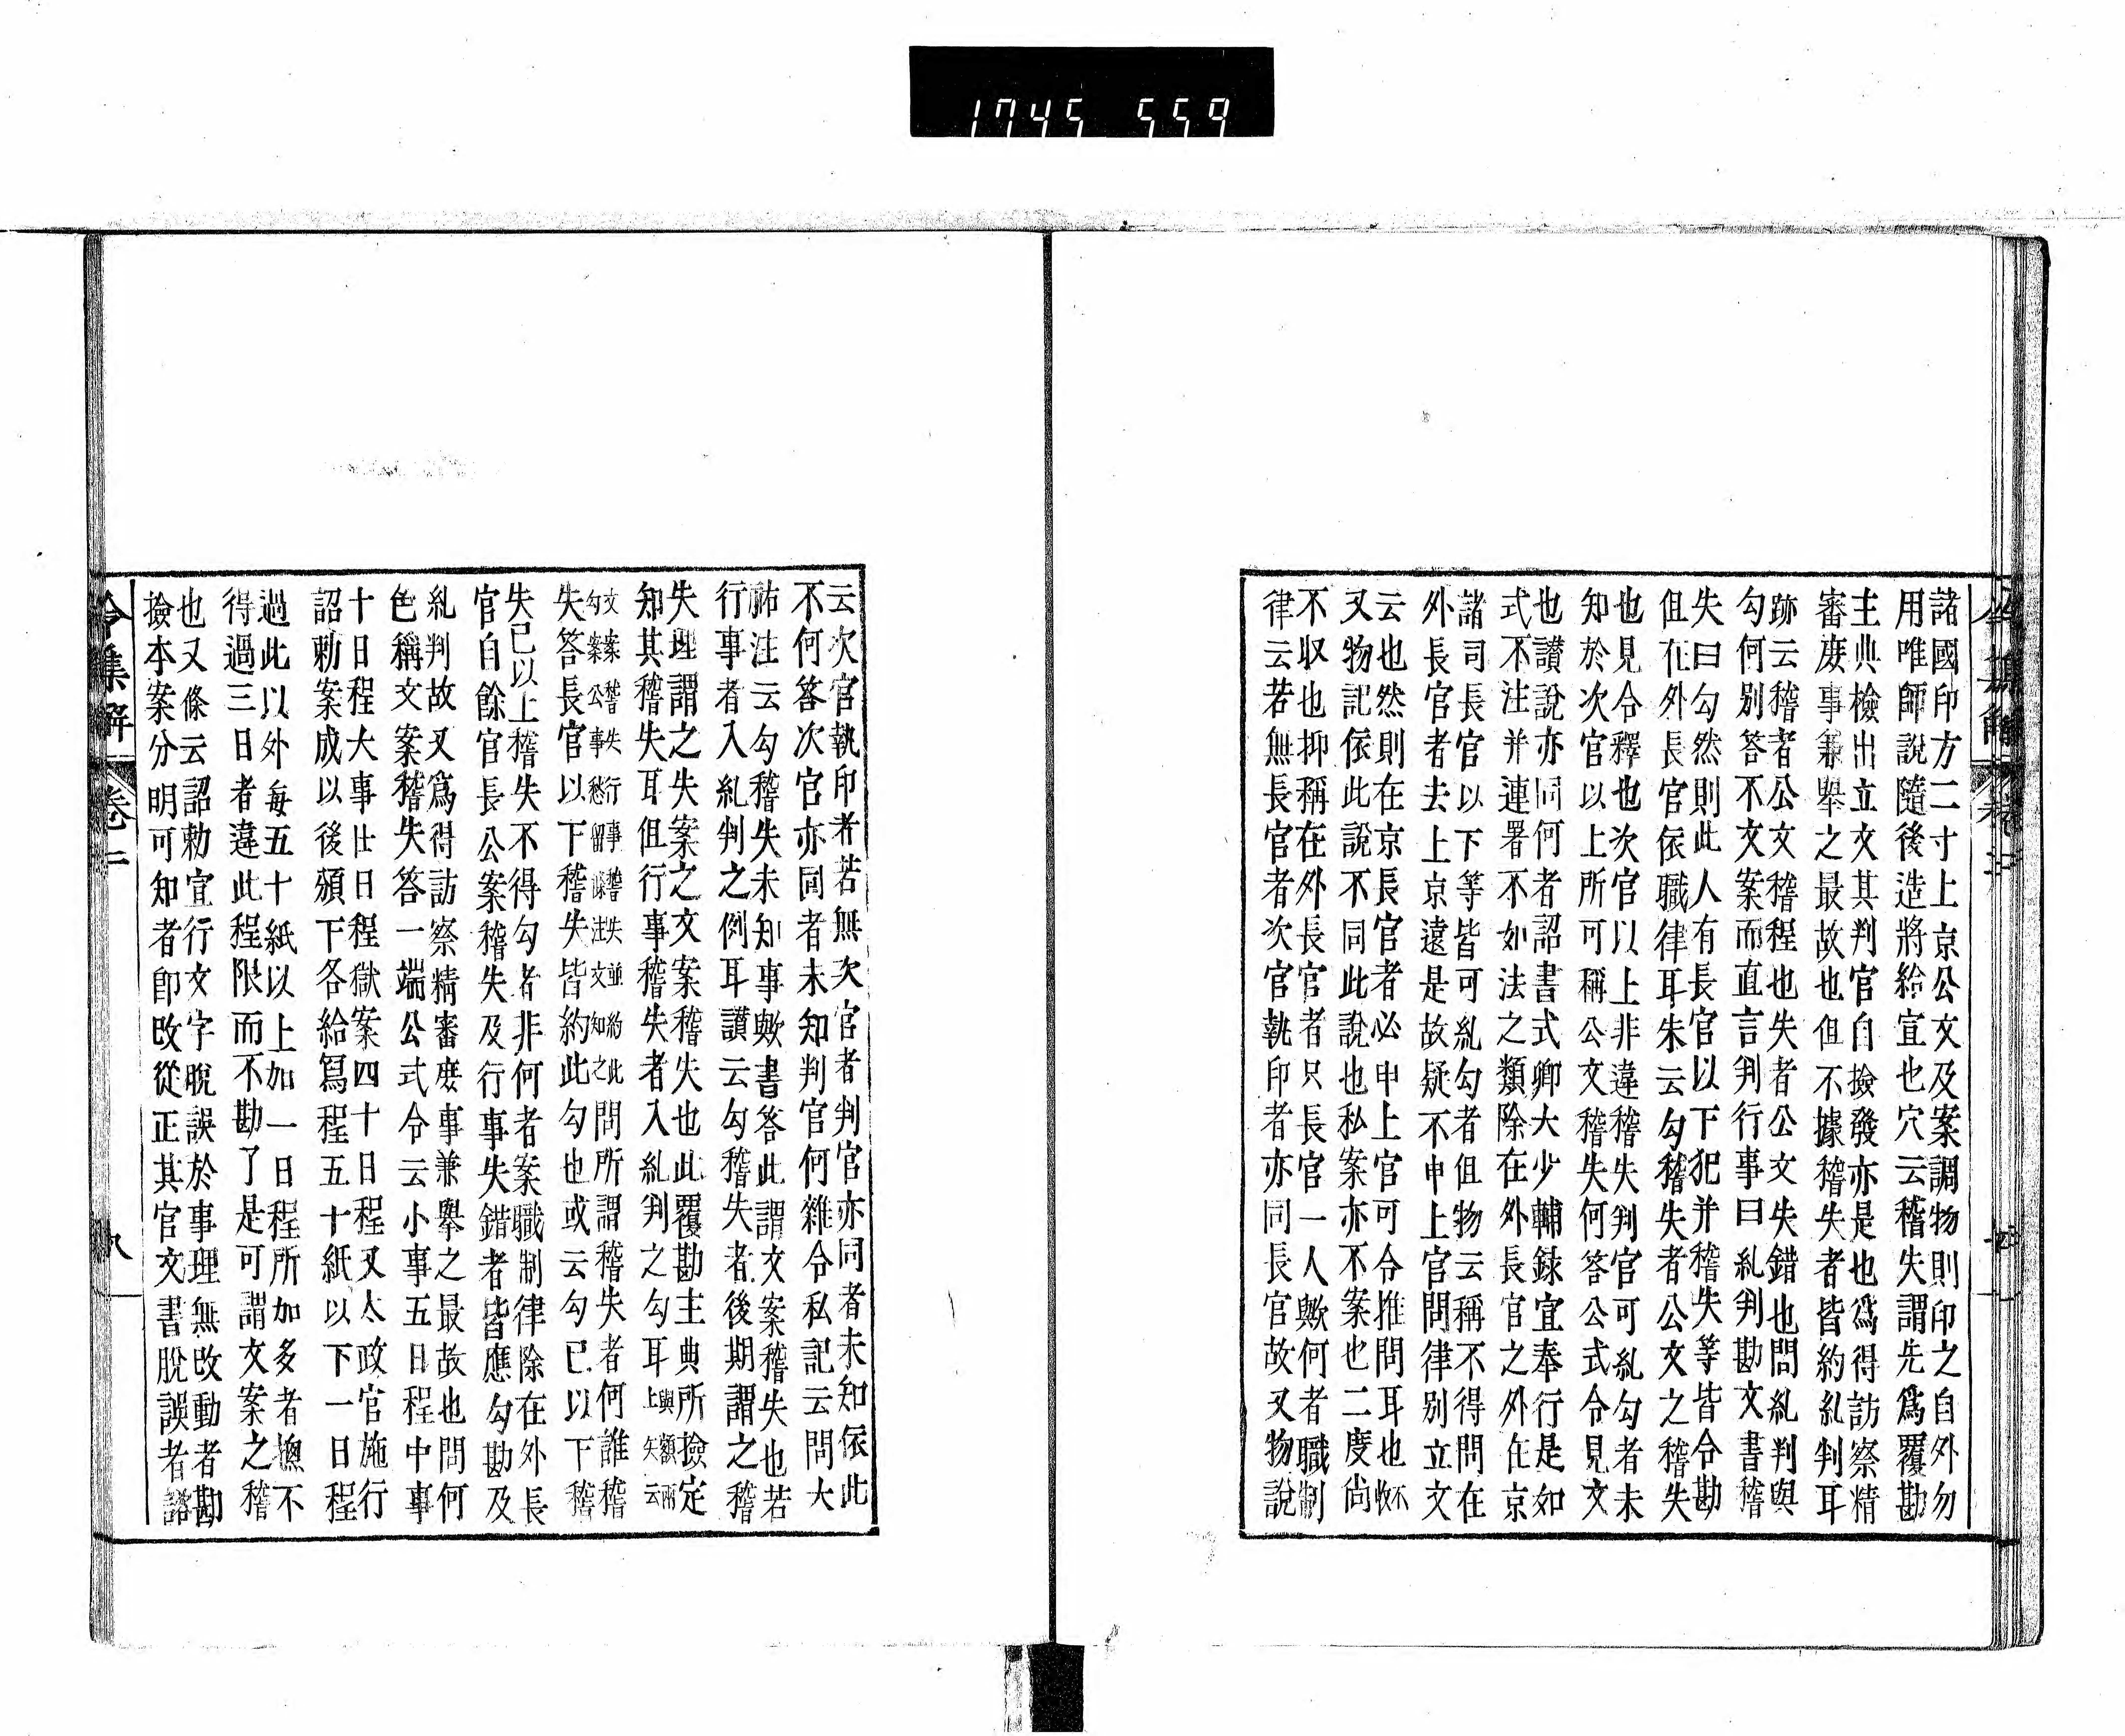 1745 559
諸國印方二寸上京公文及案調物則印之自外勿
用唯師說隨後造將給宜也穴云稽失謂先爲覆勘
主典檢出立文其判官自撿發亦是也爲得訪察精
審庶事兼舉之最故也但不據稽失者皆約糺判耳
跡云稽者公文稽程也失者公文失錯也問糺判與
勾何別答不文案而直言判行事曰糺判勘文書稽
失曰勾然則此人有長官以下犯并稽失等皆令勘
但在外長官依職律耳朱云勾稽失者公文之稽失
也見令釋也次官以上非違稽失判官可糺勾者未
知於次官以上所可稱公文稽失何答公式令見文
也讃說亦同何者詔書式卿大少輔録宜奉行是如
式不注并連署不如法之類除在外長官之外在京
諸司長官以下等皆可糺勾者但物云稱不得問在
外長官者去上京遠是故疑不申上官問律別立文
云也然則在京長官者必申上官可令推問耳也不收
又物記依此說不同此說也私案亦不案也二度尚
不収也抑稱在外長官者只長官一人歟何者職制
律云若無長官者次官執印者亦同長官故又物說
云次官執印者若無次官者判官亦同者未知依此
不何答次官亦同者未知判官何雜令私記云問大
祐注云勾稽失未知事歟書答此謂文案稽失也若
行事者入糺判之例耳讃云勾稽失者後期謂之稽
失理謂之失案之文案稽失也此覆勘主典所撿定
知其稽失耳但行事稽失者入糺判之勾耳與額兩上失云
文案稽失行事稽失並約此問所謂稽失者何誰稽
勾案公事愁留條注文知之失答長官以下稽失皆約此勾也或云勾已以下稽
失已以上稽失不得勾者非何者案職制律除在外長
官自餘官長公案稽失及行事失錯者皆應勾勘及
糺判故又爲得訪察精審庶事兼舉之最故也問何
色稱文案稽失答一端公式令云小事五日程中事
十日程大事廿日程獄案四十日程又太政官施行
詔勅案成以後頒下各給寫程五十紙以下一日程
過此以外每五十紙以上加一日程所加多者揔不
得過三日者違此程限而不勘了是可謂文案之稽
也又條云詔勅宜行文字脫誤於事理無改動者勘
撿本案分明可知者即改從正其官文書脫誤者諮
令集解 卷二
九